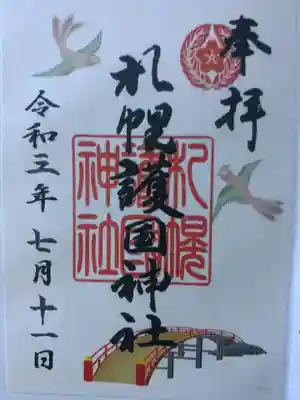 奉拝
札幌護国神社
札幌護国神社
令和三年七月十一日